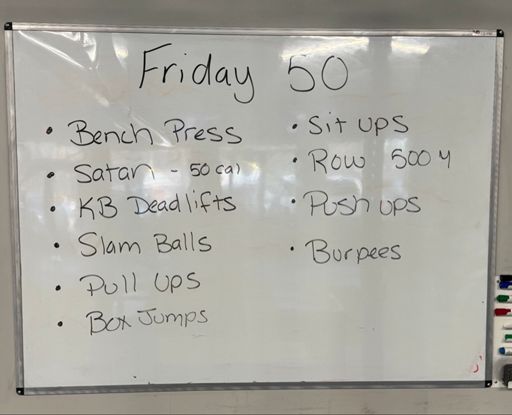 Friday 50
• Bench Press
• Satan - 50 cal
• KB Deadlifts
• Slam Balls
• Pull Ups
• Box Jumps
• Sit ups
• Row 500 M
• Push ups
• Burpees